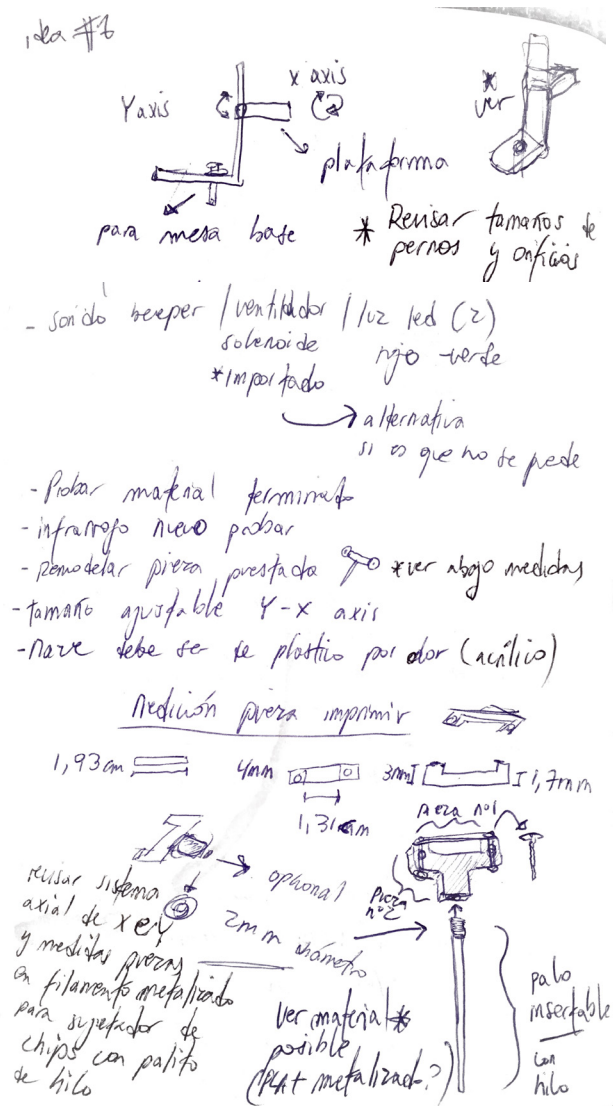 idea #1
x axis
Y axis
* ver
plataforma
para mesa base
* Revisar tamaños de
pernos y orificios
- sonido beeper / ventilador / luz led (2)
solenoide rojo - verde
*importado
alternativa
si es que no se puede
- Probar material terminado
- infrarrojo nuevo probar
- Remodelar pieza prestada *ver abajo medidas
- tamaño ajustable Y-X axis
- nave debe ser de plastico por olor (acrílico)
Medición pieza imprimir
1,93cm 4mm 3mm 1,7mm
1,31cm
pieza nº1
opcional
pieza
nº2
2mm diámetro
revisar sistema
axial de X e Y
y medidas piezas
en filamento metalizado
para sujetador de
chips con palito
de hilo
Ver material*
posible
(PLA+ metalizado?)
palo
insertable
con
hilo